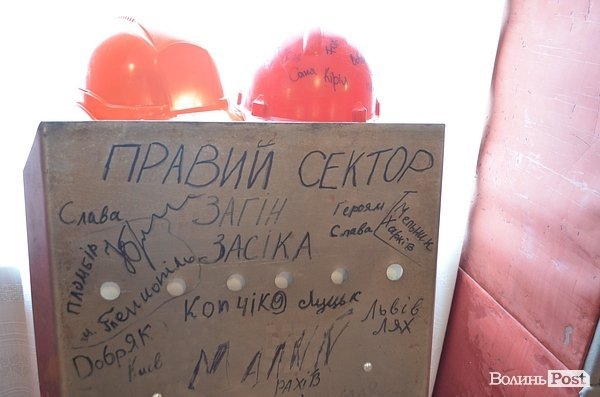 Саша Кірік
ПРАВИЙ СЕКТОР
Слава
ЗАГІН
Героям
Слава
Мельник
Харків
ЗАСІКА
ПЛОМБІР
м. Тернопіль
КОПЧІК
Луцьк
ЛЬВІВ
ЛЯХ
ДОБРЯК
Київ
МАЛИЙ
РАХІВ
ВолиньPost